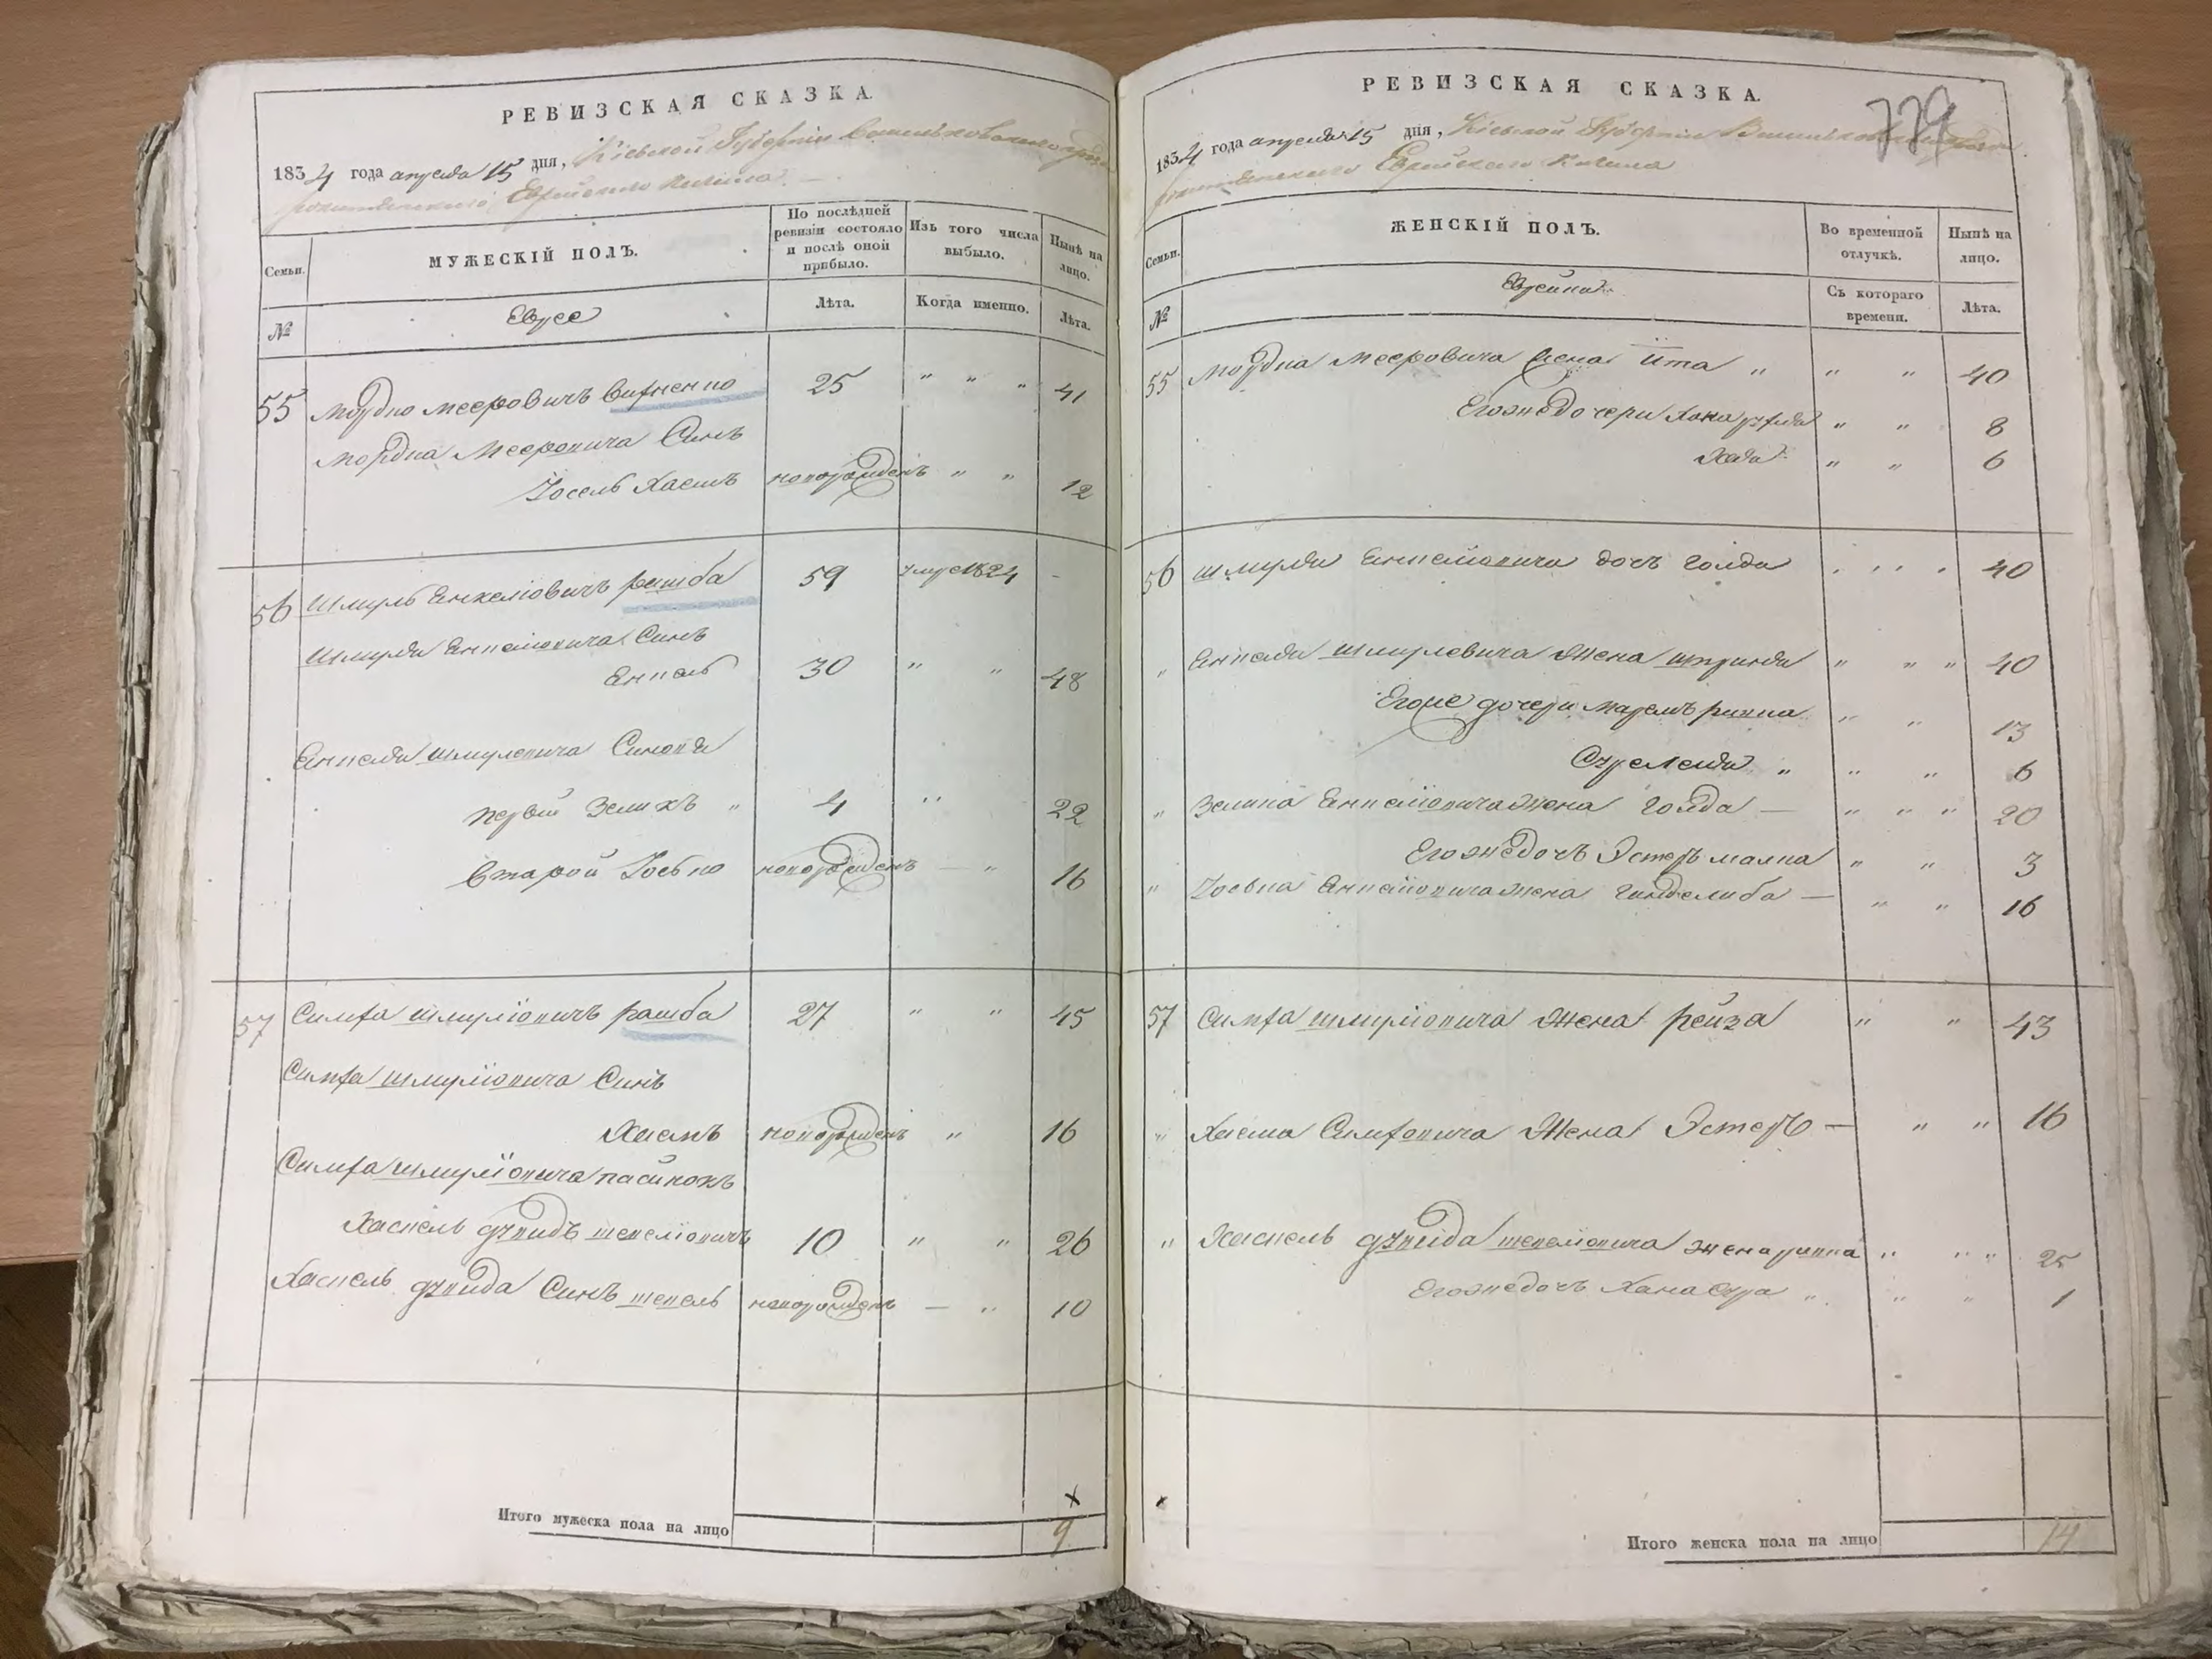 РЕВИЗСКАЯ СКАЗКА.
1834 года апреля 15 дня, Кіевской Губерніи Васильковского
Еврейского Кагала
Семьи. МУЖЕСКІЙ ПОЛЪ. По послѣдней ревизіи состояло и послѣ оной прибыло. Изъ того числа выбыло. Нынѣ на лицо.
№ Евреe Лѣта. Когда именно. Лѣта.
55 Мордко Мееровичъ 25 " " " 41
Мордка Мееровича Синъ
Іосель Хаемъ новорожденъ " " 12
56 Шмуль Енкеліовичъ рашба 59 умре 1824 -
Шмуля Енкеліовича Синъ
Енкель 30 " " 48
Енкеля Шмулевича Синовя
первой Зелихъ " 4 " 22
Второй Іосько новорожденъ — " 16
57 Симха шмуліовичъ рашба 27 " " 45
Симха шмуліовича Синъ
Хаемъ новорожденъ " 16
Симха шмуліовича пасинокъ
Хаскель Дувидъ шевеліовичъ 10 " " 26
Хаскель Дувида Синъ шевель новорожденъ — " 10
Итого мужеска пола на лицо 9
РЕВИЗСКАЯ СКАЗКА.
779
1834 года апреля 15 дня, Кіевской Губерніи
Еврейского Кагала
Семьи. ЖЕНСКІЙ ПОЛЪ. Во временной отлучкѣ. Нынѣ на лицо.
№ Еврейки Съ котораго времени. Лѣта.
55 Мордка Мееровича Жена Ита " " " 40
Егоже дочери Хана рухля " " 8
Хая " " 6
56 шмуля Енкеліовича дочъ голда . . . . 40
" Енкеля шмулевича жена шпринця " " " 40
Егоже дочери Маремъ ривка " " 13
Суре лея " " " 6
" Зелика Енкеліовича жена голда — " " " 20
Егоже дочъ Эстеръ малка " " 3
" Іоська Енкеліовича жена — " " 16
57 Симха шмуліовича жена рейза " " 43
" Хаема Симховича жена Эстеръ — " " 16
" Хаскель Дувида шевеліовича жена ривка " " " 25
Егоже дочъ Хана Сура " " " 1
Итого женска пола на лицо 14